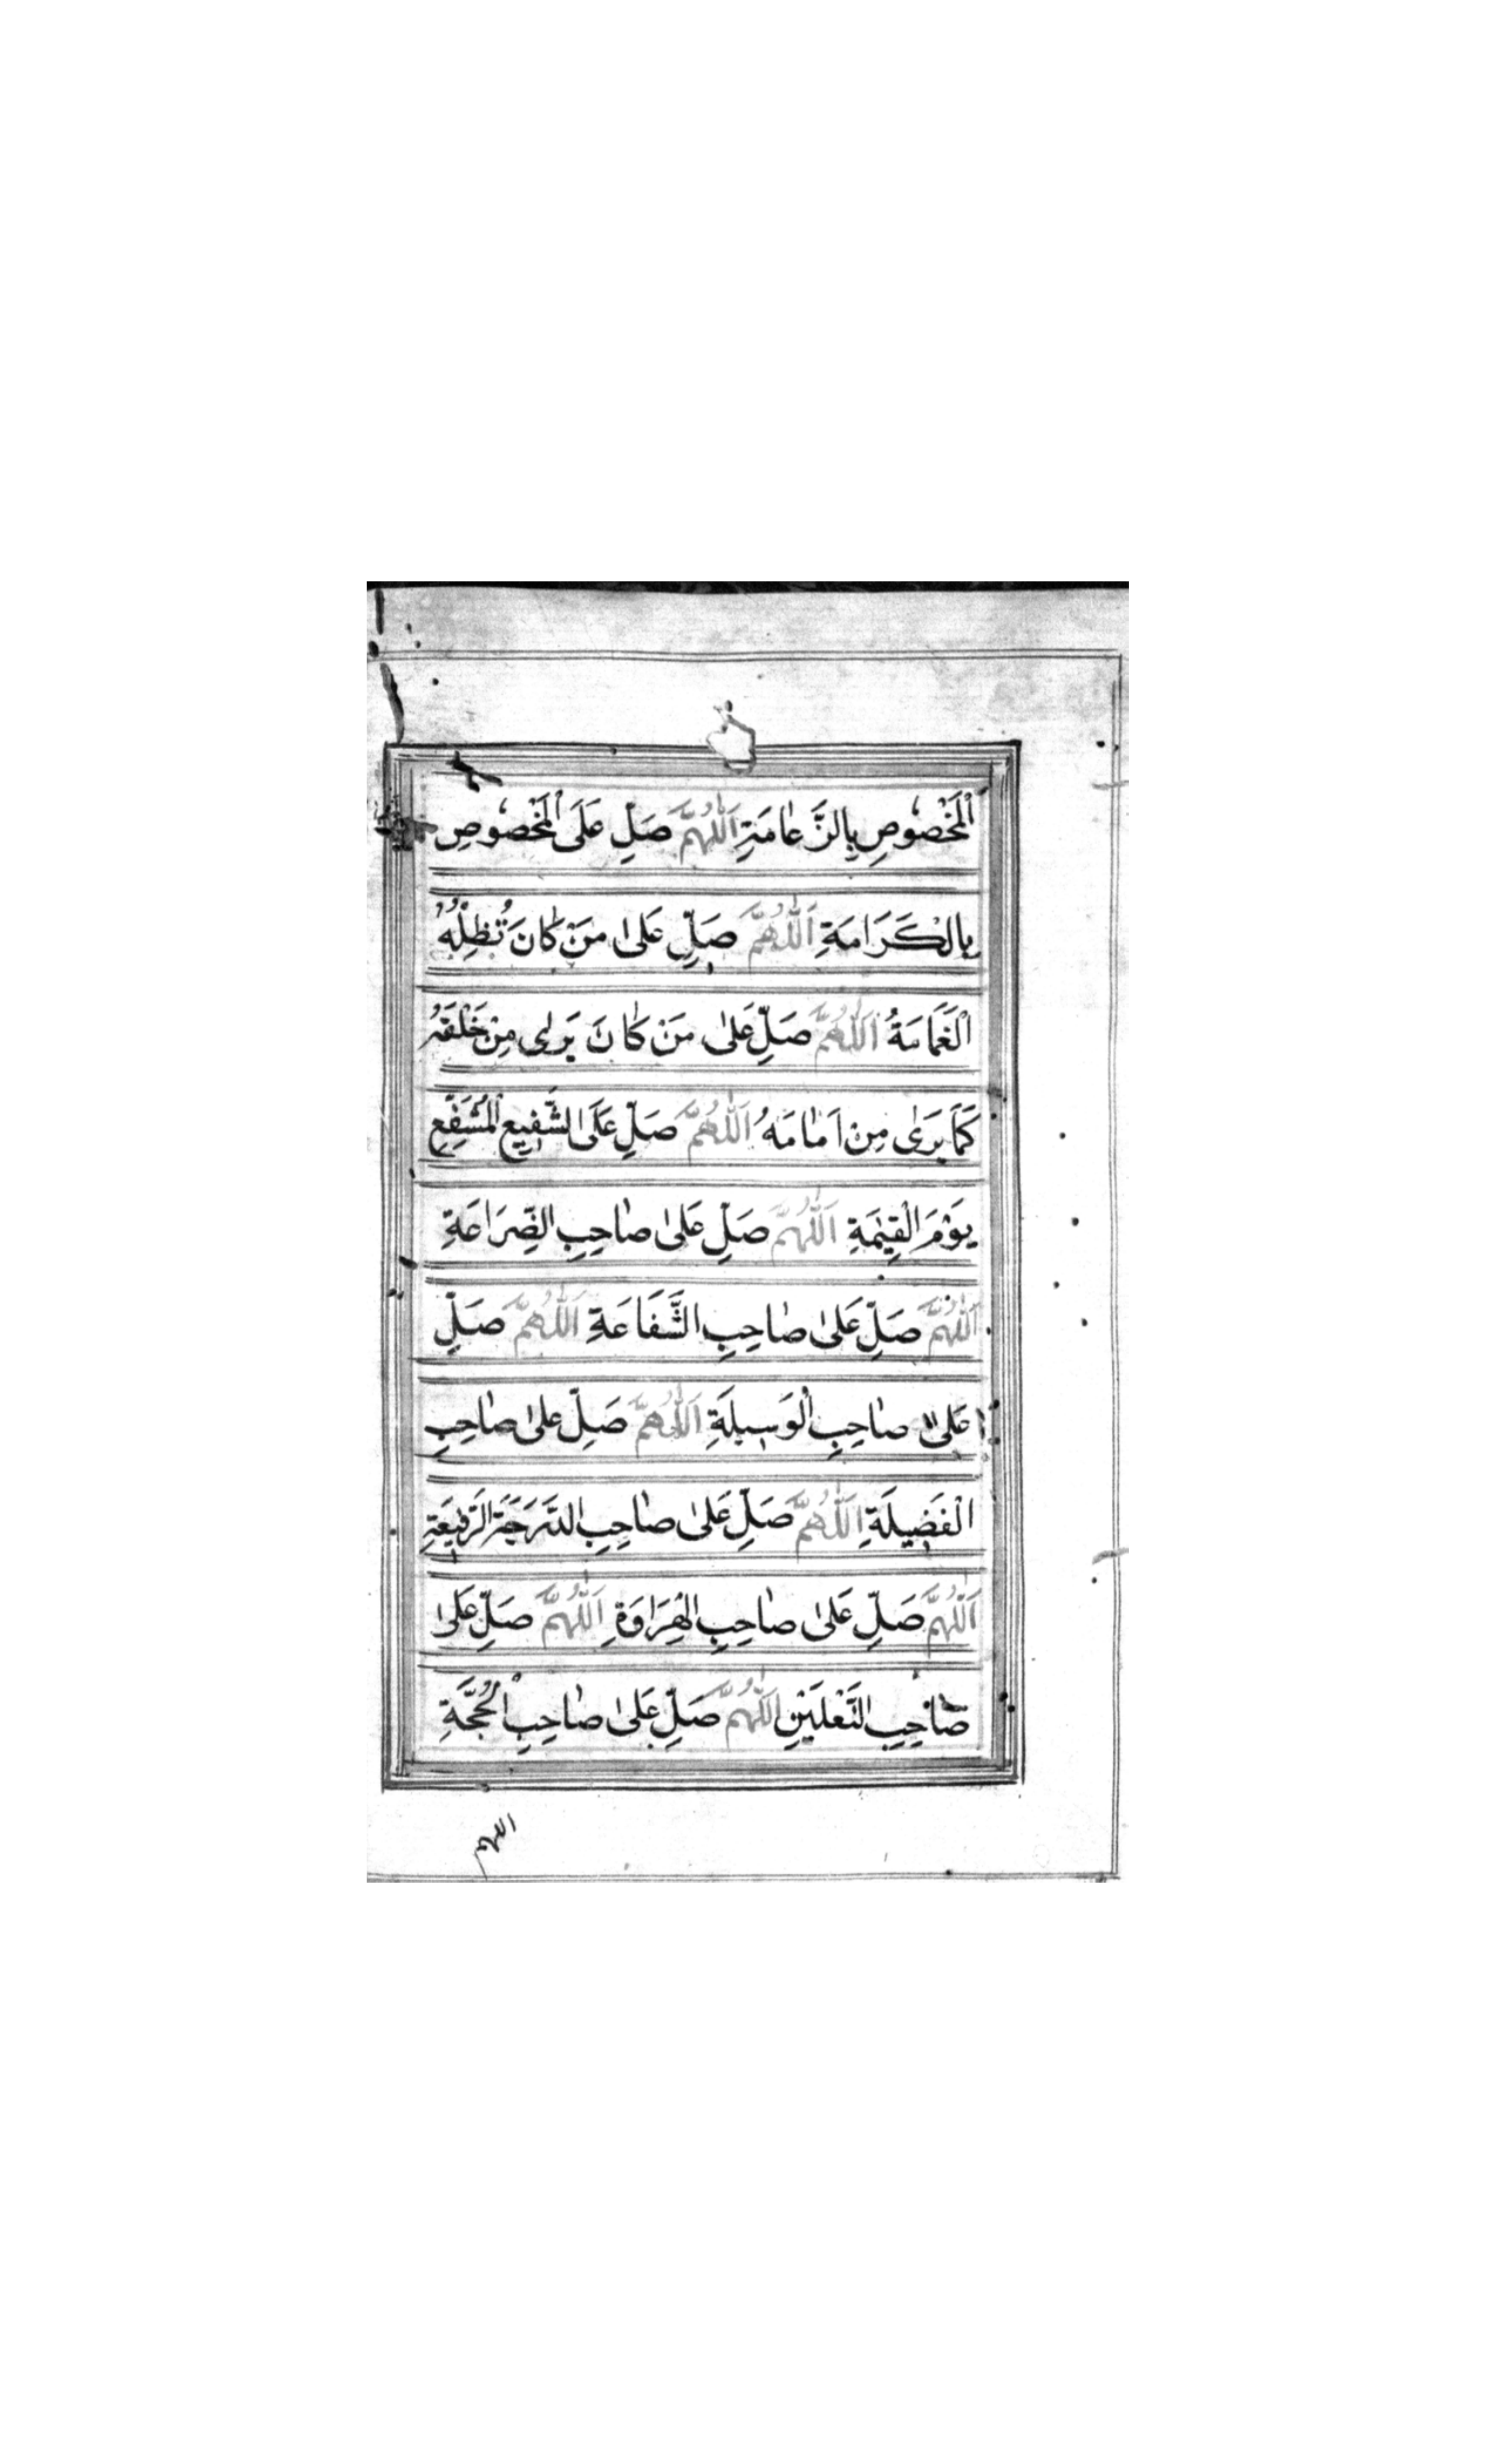 اَلْمَخْصُوْصِ بِالزَّعَامَةِ اَللّٰهُمَّ صَلِّ عَلَى الْمَخْصُوْصِ
بِالْكَرَامَةِ اَللّٰهُمَّ صَلِّ عَلٰى مَنْ كَانَ تُظِلُّهُ
الْغَمَامَةُ اَللّٰهُمَّ صَلِّ عَلٰى مَنْ كَانَ يَرٰى مِنْ خَلْفَهُ
كَمَا يَرٰى مِنْ اَمَامَهُ اَللّٰهُمَّ صَلِّ عَلَى الشَّفِيْعِ الْمُشَفَّعِ
يَوْمَ الْقِيٰمَةِ اَللّٰهُمَّ صَلِّ عَلٰى صَاحِبِ الضِّرَاعَةِ
اَللّٰهُمَّ صَلِّ عَلٰى صَاحِبِ الشَّفَاعَةِ اَللّٰهُمَّ صَلِّ
عَلٰى صَاحِبِ الْوَسِيلَةِ اَللّٰهُمَّ صَلِّ عَلٰى صَاحِبِ
الْفَضِيلَةِ اَللّٰهُمَّ صَلِّ عَلٰى صَاحِبِ الدَّرَجَةِ الرَّفِيعَةِ
اَللّٰهُمَّ صَلِّ عَلٰى صَاحِبِ الْهِرَاوَةِ اَللّٰهُمَّ صَلِّ عَلٰى
صَاحِبِ النَّعْلَيْنِ اَللّٰهُمَّ صَلِّ عَلٰى صَاحِبِ الْحُجَّةِ
اللهم